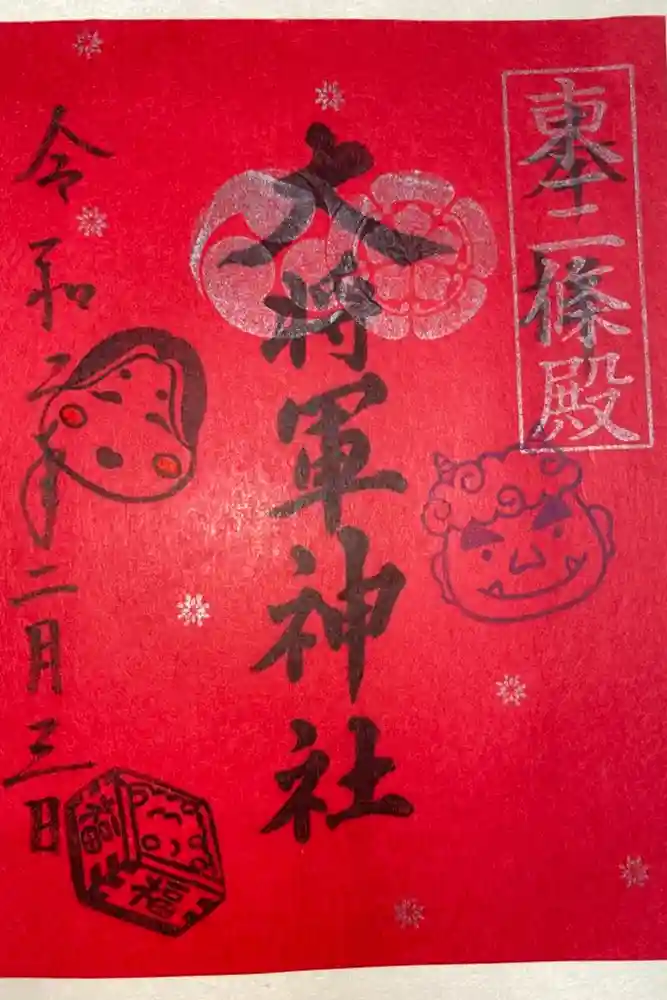 奉
拝
東三條殿
大将軍神社
令和二年二月三日
福